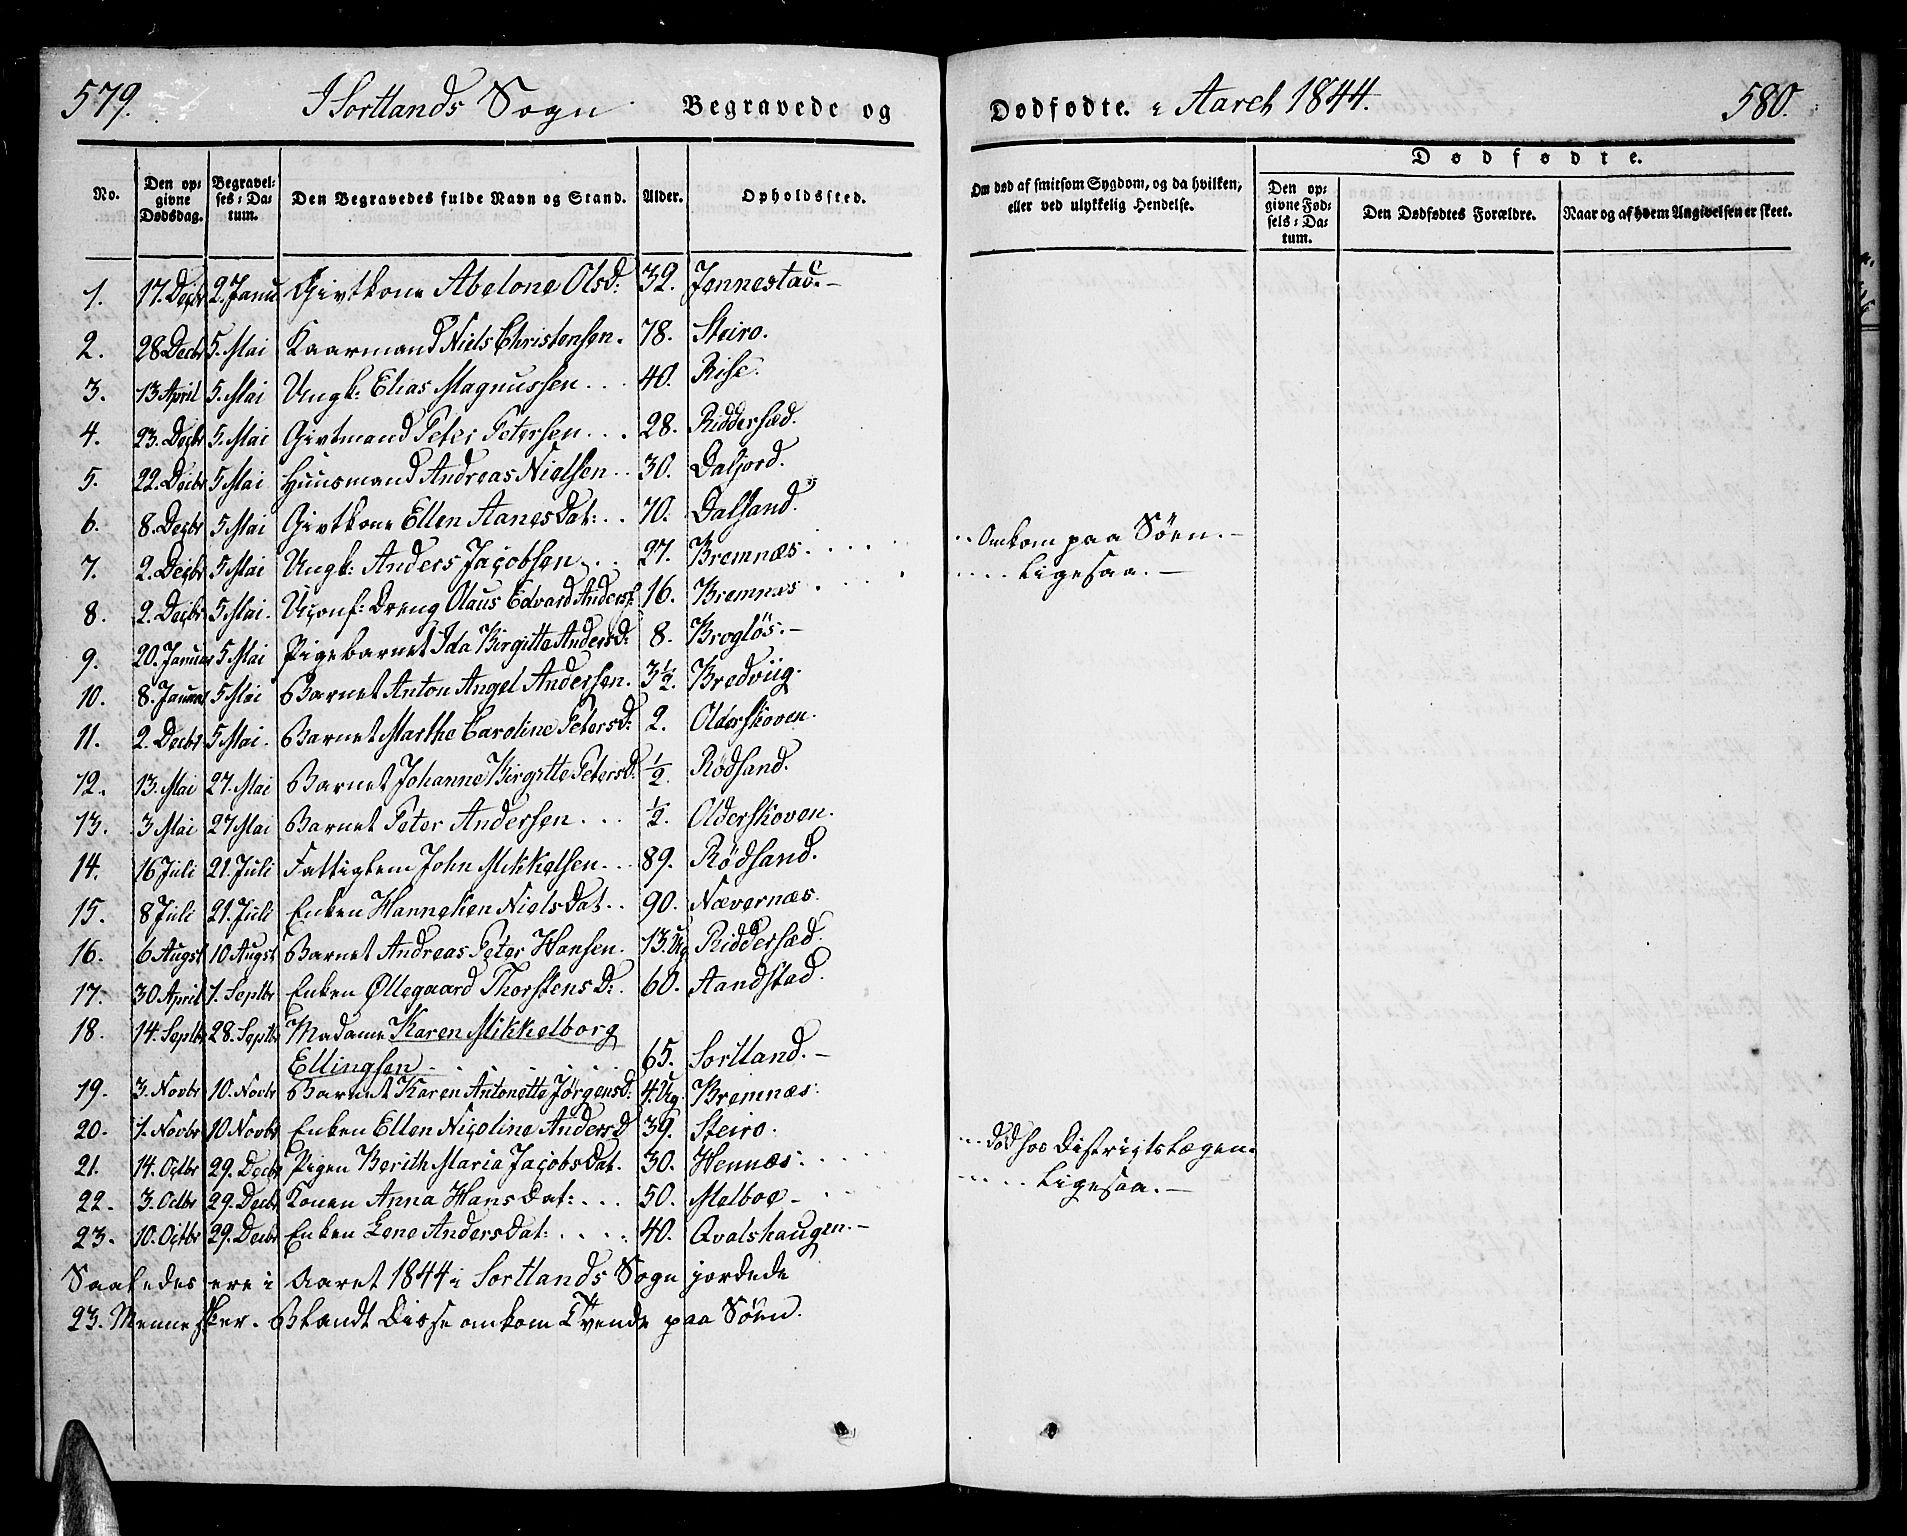 579. I Sortlands Sogn. Begravede og Dødfødte. i Aaret 1844. 580.
Dødfødte.
No. Den opgivne Dødsdag. Begravelses-Datum. Den Begravedes fulde Navn og Stand. Alder. Opholdssted. Om død af smitsom Sygdom, og da hvilken, eller ved ulykkelig Hendelse. Den opgivne Fødsels-Datum. Den Dødfødtes Forældre. Naar og af hvem Angivelsen er skeet.
1. 17. Decbr 2. Janu Givtkone Abelone Olsd: 32. Jennestad.-
2. 28 Decbr 5. Mai Kaarmand Niels Christensen. 78. Steiro.
3. 13 April 5. Mai Ungk: Elias Magnussen ... 40. Rise.
4. 23. Decbr 5. Mai Givtmand Peter Petersen ... 28. Riddersæd.
5. 22. Decbr 5 Mai Huusmand Andreas Nielsen .. 30. Daljord.
6. 8. Decbr 5 Mai Givtkone Ellen Aanesdat: .. 70. Dalsand.
7. 2. Decbr 5 Mai Ungk: Anders Jacobsen .. 27. Bremnæs. .... .. Omkom paa Søen.-
8. 2. Decbr 5 Mai. Uconf: Dreng Olaus Edvard Anders: 16. Bremnæs. .... Ligesaa.-
9. 20. Januar 5 Mai Pigebarnet Ida Birgitte Andersd: 8. Brogløs.-
10. 8. Januar 5 Mai Barnet Anton Angel Andersen. 3½. Bredviig.
11. 2. Decbr 5 Mai. Barnet Marthe Caroline Petersd: 2. Olderskoven.
12. 13. Mai 27. Mai Barnet Johanne Birgitte Petersd: ½. Rødsand.
13. 3 Mai 27 Mai Barnet Peter Andersen ... ½. Olderskoven.
14. 16 Juli 21. Juli Fattiglem John Mikkelsen ... 89. Rødsand.
15. 8 Juli 21. Juli Enken Hanneken Nielsdat .. 90. Nævernæs.
16. 6 Augst 10 Augst Barnet Andreas Peter Hansen. 13. Ug Riddersæd.
17. 30 April 1. Septbr Enken Øllegaard Thorstensd: 60. Aandstad.
18. 14. Septbr 28. Septbr Madame Karen Mikkelborg
Ellingsen ..... 65. Sortland.-
19. 3. Novbr 10. Novbr Barnet Karen Antonette Jørgensd: 4. Ug. Bremnæs.
20. 1. Novbr 10 Novbr Enken Ellen Nicoline Andersd 39. Steiro.
21. 14. Octbr 29. Decbr Pigen Berith Maria Jacobsdat. 30. Hennæs. .... ... død hos Distrigtslægen.
22. 3. Octbr 29. Decbr Konen Anna Hansdat: ... 50. Melboe - ... Ligesaa.-
23. 10. Octbr 29. Decbr Enken Lene Andersdat: .... 40. Qvalshaugen.-
Saaledes ere i Aaret 1844 i Sortlands Sogn jordede
23. Mennesker. Blandt Disse omkom Tvende paa Søen.